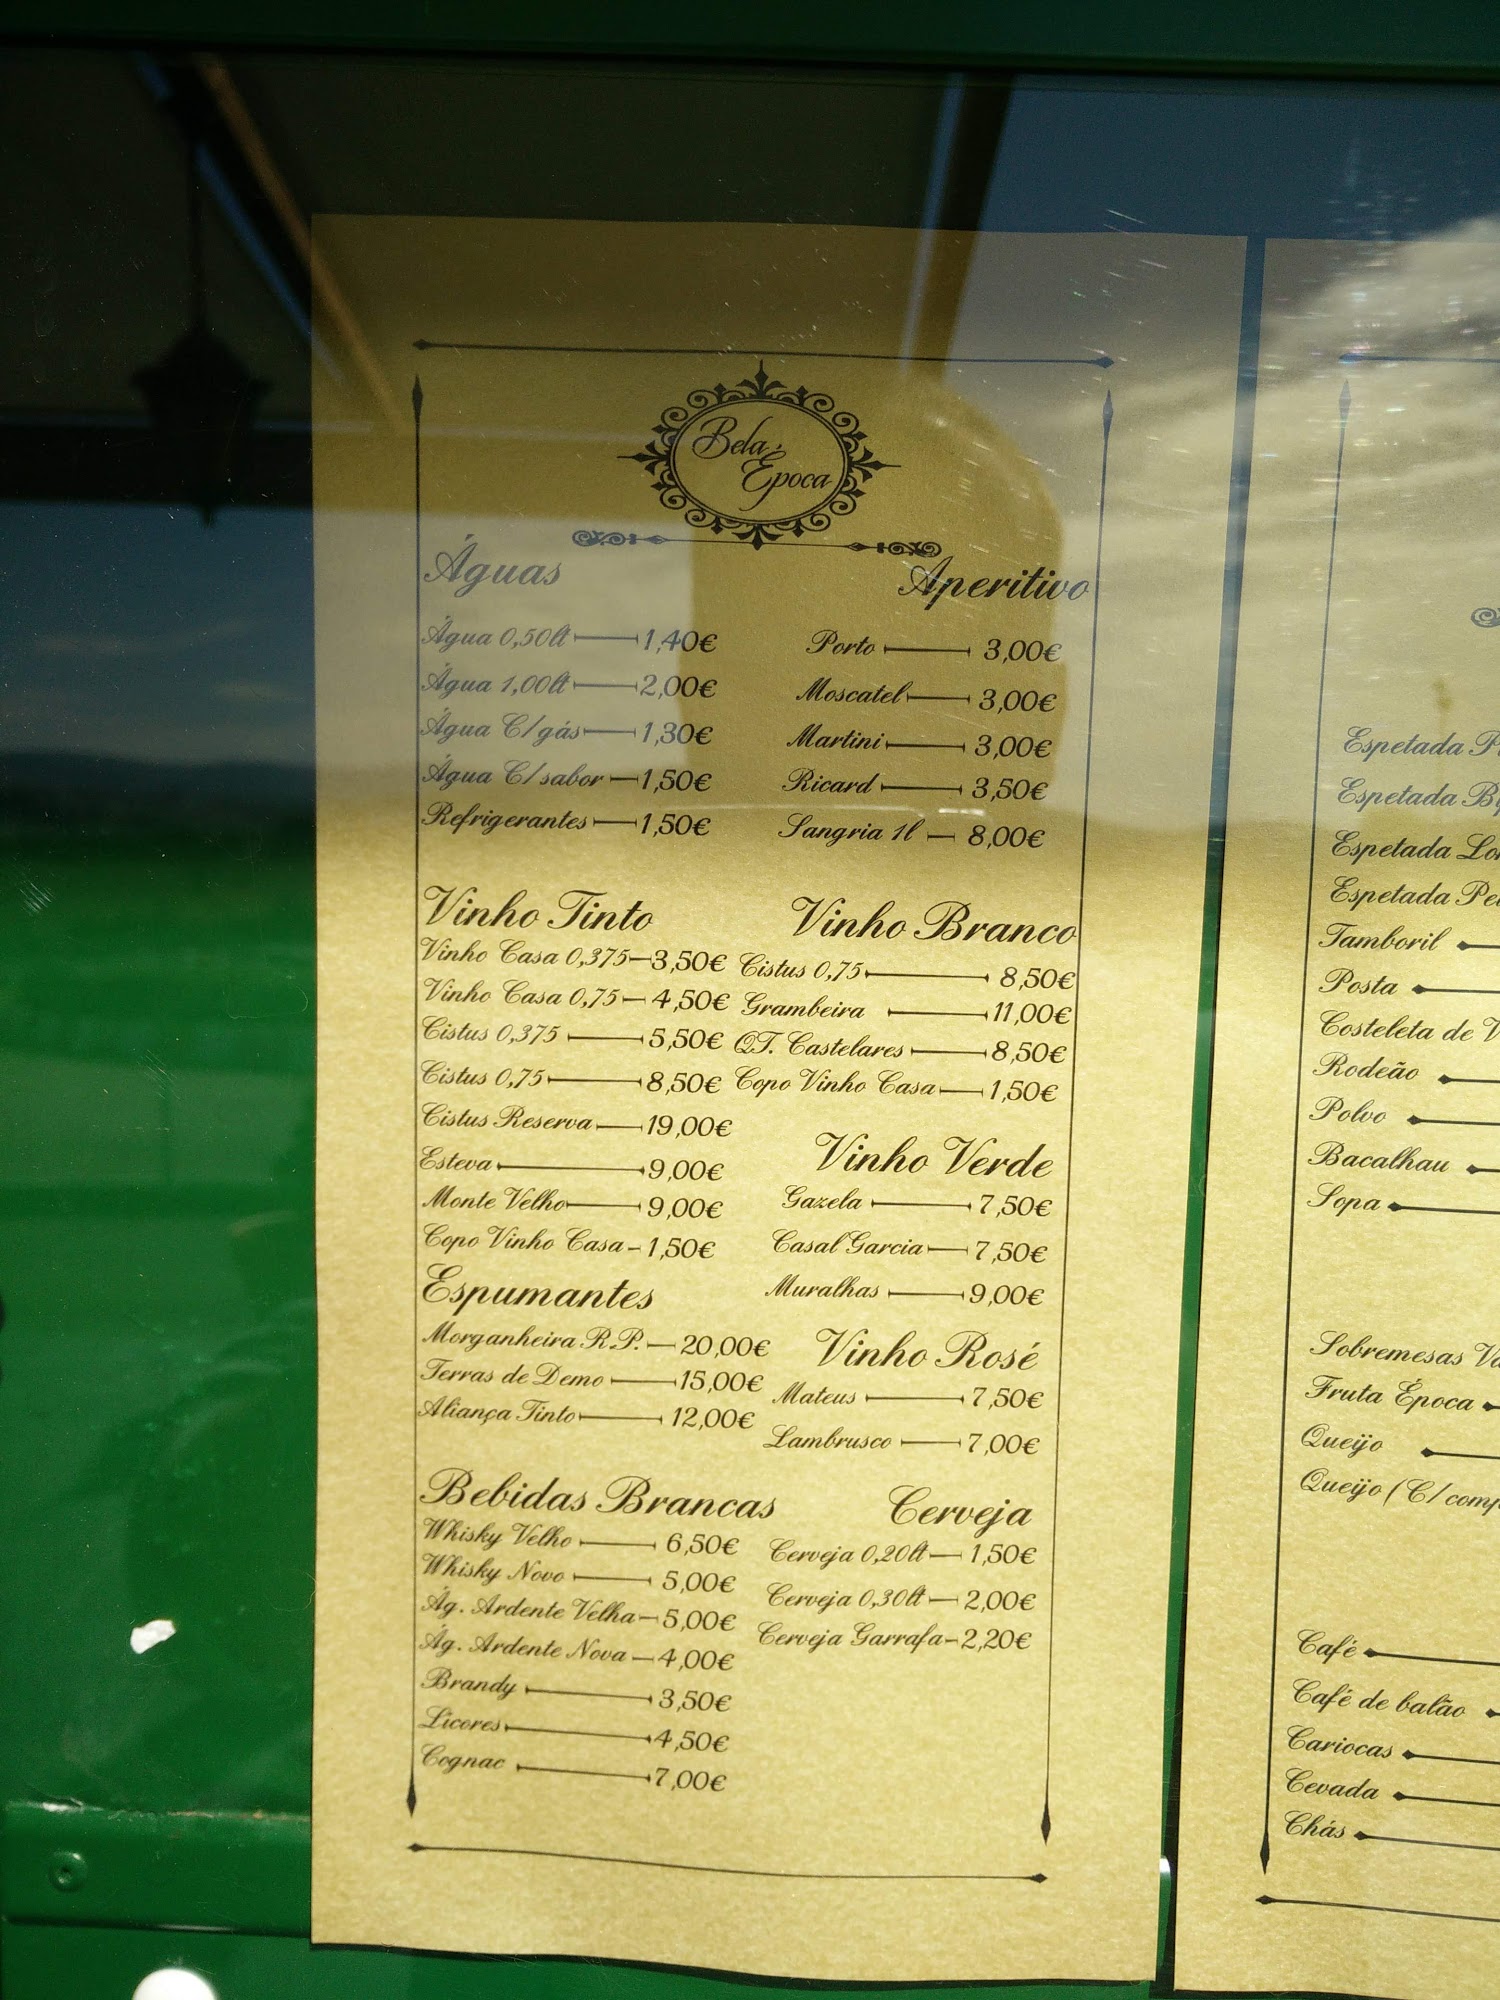 Bela
Época
Águas
Água 0,50lt 1,40€
Água 1,00lt 2,00€
Água C/gás 1,30€
Água C/sabor 1,50€
Refrigerantes 1,50€
Aperitivo
Porto 3,00€
Moscatel 3,00€
Martini 3,00€
Ricard 3,50€
Sangria 1l 8,00€
Vinho Tinto
Vinho Casa 0,375 3,50€
Vinho Casa 0,75 4,50€
Cistus 0,375 5,50€
Cistus 0,75 8,50€
Cistus Reserva 19,00€
Esteva 9,00€
Monte Velho 9,00€
Copo Vinho Casa 1,50€
Vinho Branco
Cistus 0,75 8,50€
Grambeira 11,00€
QT. Castelares 8,50€
Copo Vinho Casa 1,50€
Vinho Verde
Gazela 7,50€
Casal Garcia 7,50€
Muralhas 9,00€
Espumantes
Morganheira R.P. 20,00€
Terras de Demo 15,00€
Aliança Tinto 12,00€
Vinho Rosé
Mateus 7,50€
Lambrusco 7,00€
Bebidas Brancas
Whisky Velho 6,50€
Whisky Novo 5,00€
Ág. Ardente Velha 5,00€
Ág. Ardente Nova 4,00€
Brandy 3,50€
Licores 4,50€
Cognac 7,00€
Cerveja
Cerveja 0,20lt 1,50€
Cerveja 0,30lt 2,00€
Cerveja Garrafa 2,20€
Espetada
Espetada
Espetada
Espetada
Tamboril
Posta
Costeleta de
Rodeão
Polvo
Bacalhau
Sopa
Sobremesas
Fruta Época
Queijo
Queijo (C/
Café
Café de balão
Cariocas
Cevada
Chás